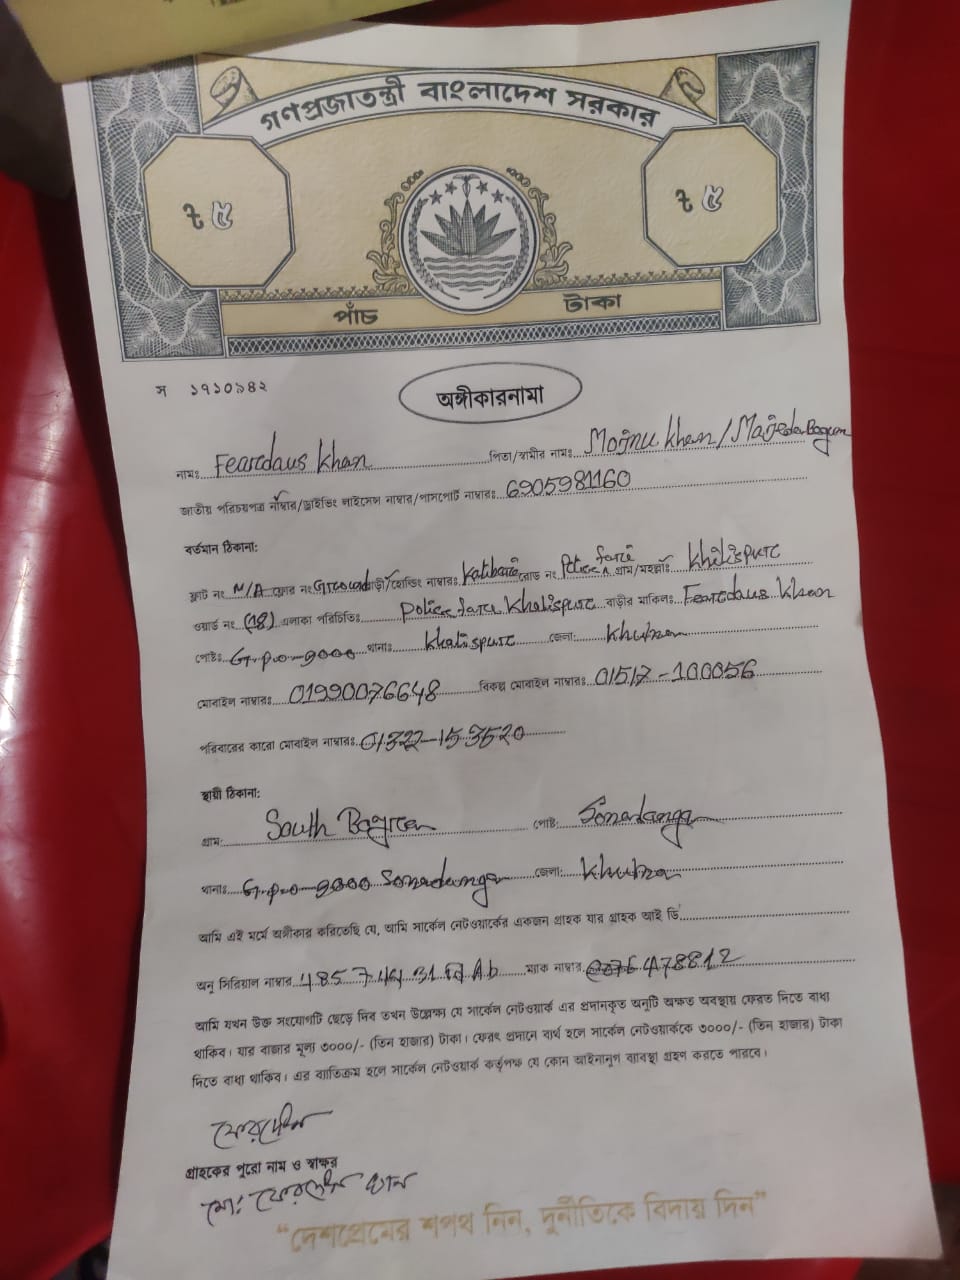 গণপ্রজাতন্ত্রী বাংলাদেশ সরকার
৳ ৫ ৳ ৫
পাঁচ টাকা
স ১৭১০১৪২
অঙ্গীকারনামা
নামঃ Feardaus Khan পিতা/স্বামীর নামঃ Mojnu Khan / Majeda Begum
জাতীয় পরিচয়পত্র নাম্বার/ড্রাইভিং লাইসেন্স নাম্বার/পাসপোর্ট নাম্বারঃ 6905981160
বর্তমান ঠিকানা:
ফ্ল্যাট নং N/A ফ্লোর নং Ground বাড়ী/হোল্ডিং নাম্বারঃ রোড নং Police fare গ্রাম/মহল্লাঃ Khalispur
ওয়ার্ড নং (18) এলাকা পরিচিতিঃ Police fare Khalispur বাড়ীর মালিকঃ Feardaus Khan
পোষ্টঃ G.P.O-9000 থানাঃ Khalispur জেলা: Khulna
মোবাইল নাম্বারঃ 01990076648 বিকল্প মোবাইল নাম্বারঃ 01517-100056
পরিবারের কারো মোবাইল নাম্বারঃ 01322-153520
স্থায়ী ঠিকানা:
গ্রাম: South পোষ্ট: Sonadanga
থানাঃ G.P.O-9000 Sonadanga জেলা: Khulna
আমি এই মর্মে অঙ্গীকার করিতেছি যে, আমি সার্কেল নেটওয়ার্কের একজন গ্রাহক যার গ্রাহক আই ডি
অনু সিরিয়াল নাম্বার ম্যাক নাম্বার
আমি যখন উক্ত সংযোগটি ছেড়ে দিব তখন উল্লেখ্য যে সার্কেল নেটওয়ার্ক এর প্রদানকৃত অনুটি অক্ষত অবস্থায় ফেরত দিতে বাধ্য
থাকিব। যার বাজার মূল্য ৩০০০/- (তিন হাজার) টাকা। ফেরৎ প্রদানে ব্যর্থ হলে সার্কেল নেটওয়ার্ককে ৩০০০/- (তিন হাজার) টাকা
দিতে বাধ্য থাকিব। এর ব্যতিক্রম হলে সার্কেল নেটওয়ার্ক কর্তৃপক্ষ যে কোন আইনানুগ ব্যবস্থা গ্রহণ করতে পারবে।
ফেরদৌস
গ্রাহকের পুরো নাম ও স্বাক্ষর
মো: ফেরদৌস খান
“দেশপ্রেমের শপথ নিন, দুর্নীতিকে বিদায় দিন”